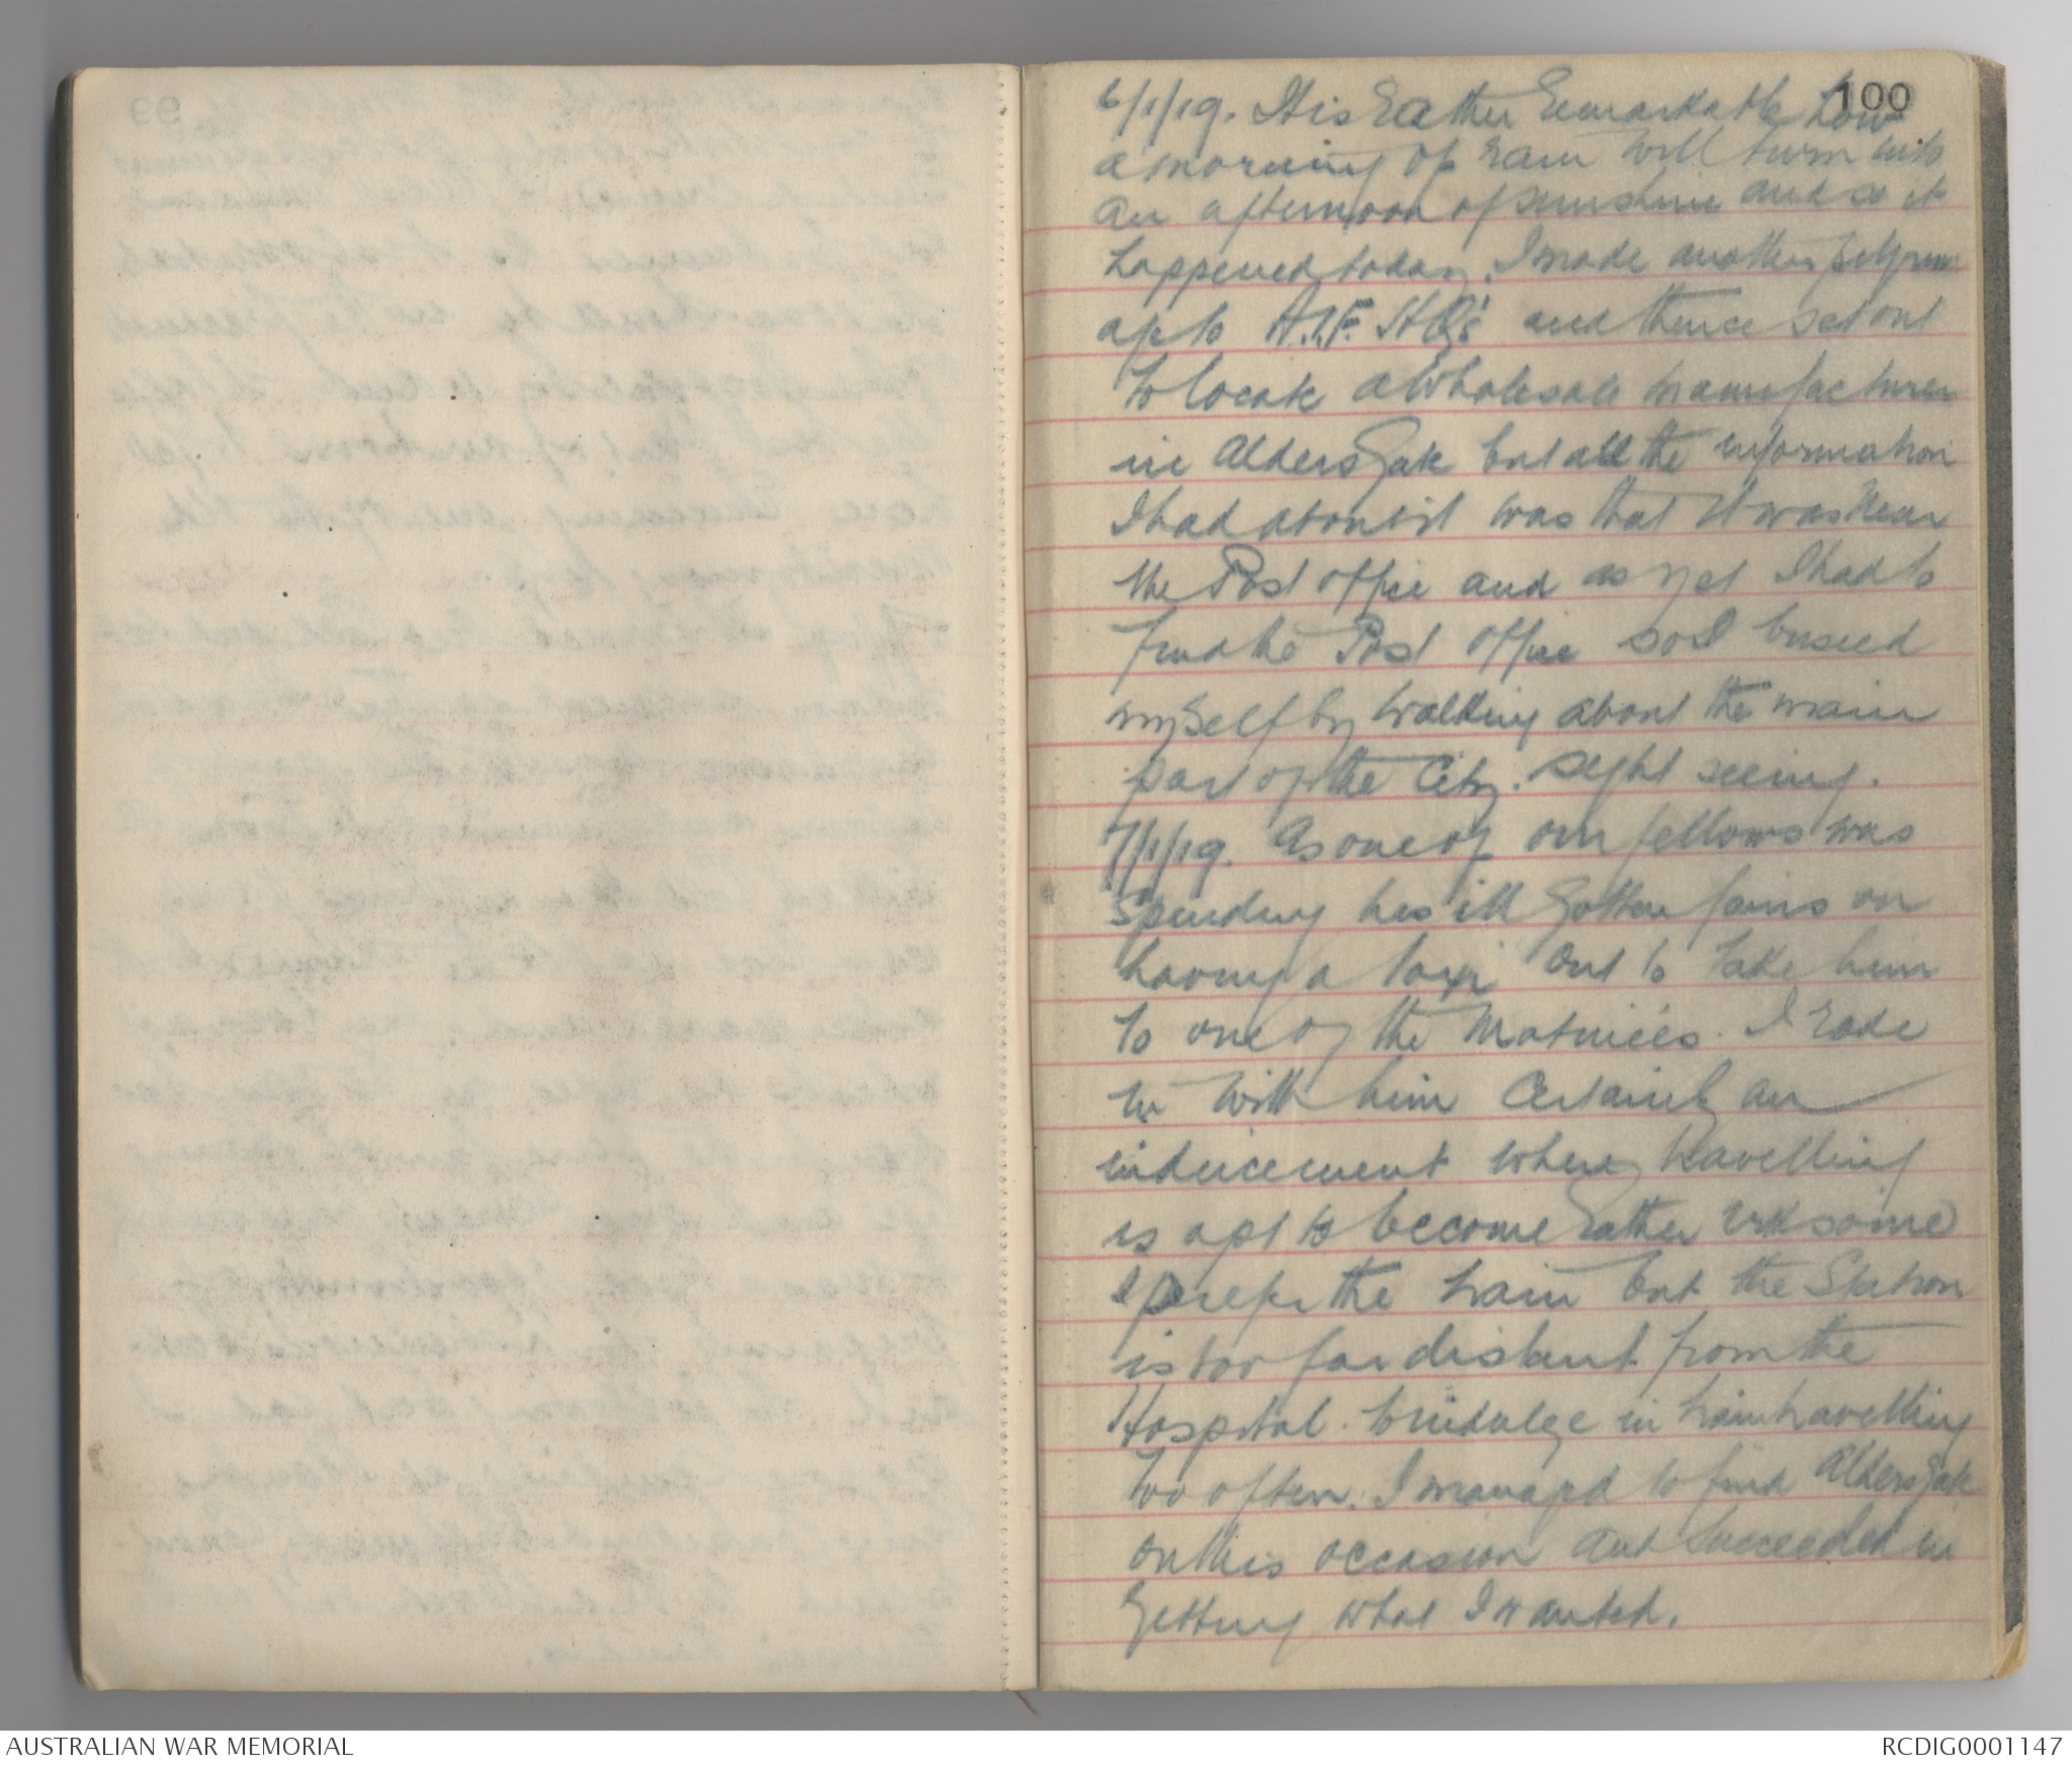 100
6/1/19. It is rather remarkable how
a morning of rain will turn into
an afternoon of sunshine and so it
happened today. I made another
up to A.I.F. HQrs and thence set out
to locate a wholesale manufacturer
in Aldersgate but all the information
I had about it was that it was near
the Post office and as yet I had to
find the Post office so I busied
myself by walking about the main
part of the City. sight seeing.
7/1/19. As one of our fellows was
spending his ill gotten gains on
having a taxi out to take him
to one of the Matineés. I rode
in with him certainly an
inducement where travelling
is apt to become rather irksome
I prefer the train but the Station
is too far distant from the
Hospital. to indulge in train travelling
too often. I managed to find Aldersgate
on this occasion and succeeded in
getting what I wanted.
AUSTRALIAN WAR MEMORIAL
RCDIG0001147